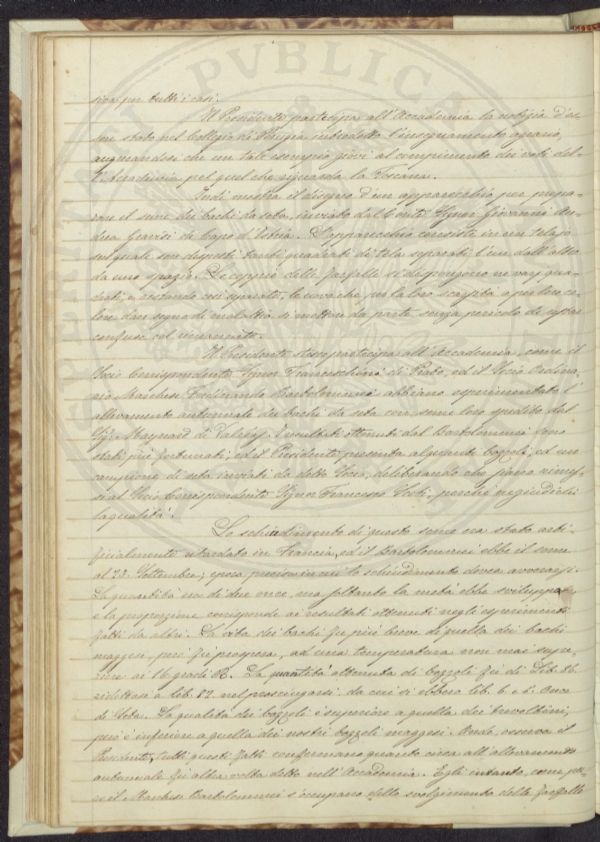 sion per tutti i casi.
Il Presidente partecipa all'Accademia la notizia d'es-
sere stato nel Collegio di introdotto l'insegnamento agrario,
augurandosi che un tale esempio giovi al compimento dei voti del-
l'Accademia pel quel che riguarda la Toscana.
Indi mostra il disegno d'un apparecchio per prepa-
rare il seme dei bachi da seta, inviato dal Conte Signor Giovanni An-
drea Gravisi di Capo d'Istria. L'apparecchio consiste in un telajo
sul quale son disposti tanti quadrati di tela separati l'un dall'altro
da uno spazio. Le coppie delle farfalle si dispongono ne varj qua-
drati, e restando così separate, le uova che per la loro scarsità o per loro co-
lore dan segno di malattia si metton da parte senza pericolo di esser
confuse col rimanente.
Il Presidente stesso partecipa all'Accademia, come il
Socio Corrispondente Signor Franceschini di Prato, ed il Socio Ordina-
rio Marchese Ferdinando Bartolommei abbiano esperimentato l'
allevamento autunnale dei bachi da seta con seme loro spedito dal
Sig. Maynard di Valréas. I resultati ottenuti dal Bartolommei sono
stati più fortunati; ed il Presidente presenta alquanti bozzoli, ed un
campione di seta inviati da detto Socio, deliberando che siano rimes-
si al Socio Corrispondente Signor Francesco perché ne giudichi
la qualità.
Lo schiudimento di questo seme era stato arti-
ficialmente ritardato in Francia, ed il Bartolommei ebbe il seme
al 22 Settembre; epoca precisa in cui lo schiudimento dovea avverarsi.
La quantità era di due once, ma soltanto la metà ebbe sviluppo,
e la proporzione corrisponde ai resultati ottenuti negli esperimenti
fatti da altri. La vita dei bachi fu più breve di quella dei bachi
maggesi, però fu prospera, ad una temperatura non mai supe-
riore ai 16 gradi R. La quantità ottenuta di bozzoli fu di Lib. 86
ridottasi a lib. 82 nel prosciugarsi. da cui si ebbero lib. 6 e Once
di seta. La qualità dei bozzoli è superiore a quella dei trevoltini,
però è inferiore a quella dei nostri bozzoli maggesi. Onde, osserva il
Presidente, tutti questi fatti confermano quanto circa all'allevamento
autunnale fu altra volta detto nell'Accademia. Egli intanto, come pu-
re il Marchese Bartolommei s'occupano dello svolgimento delle farfalle